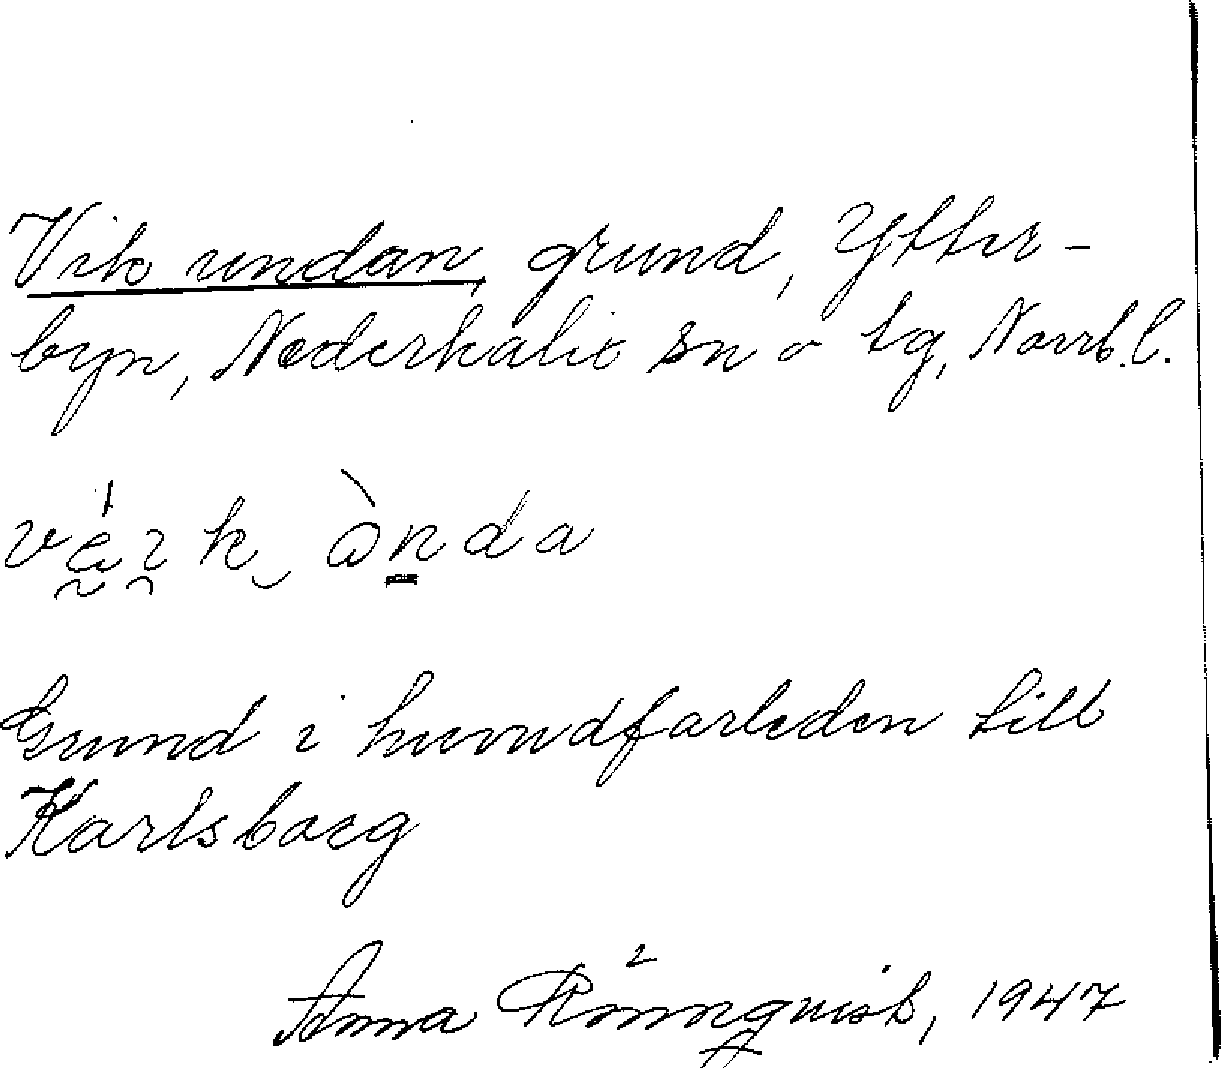 Vik undan, grund, Ytter-
byn, Nederkalix sn o tg, Norrb.l.
Grund i huvudfarleden till
Karlsborg
Anna Rönnqvist, 1947